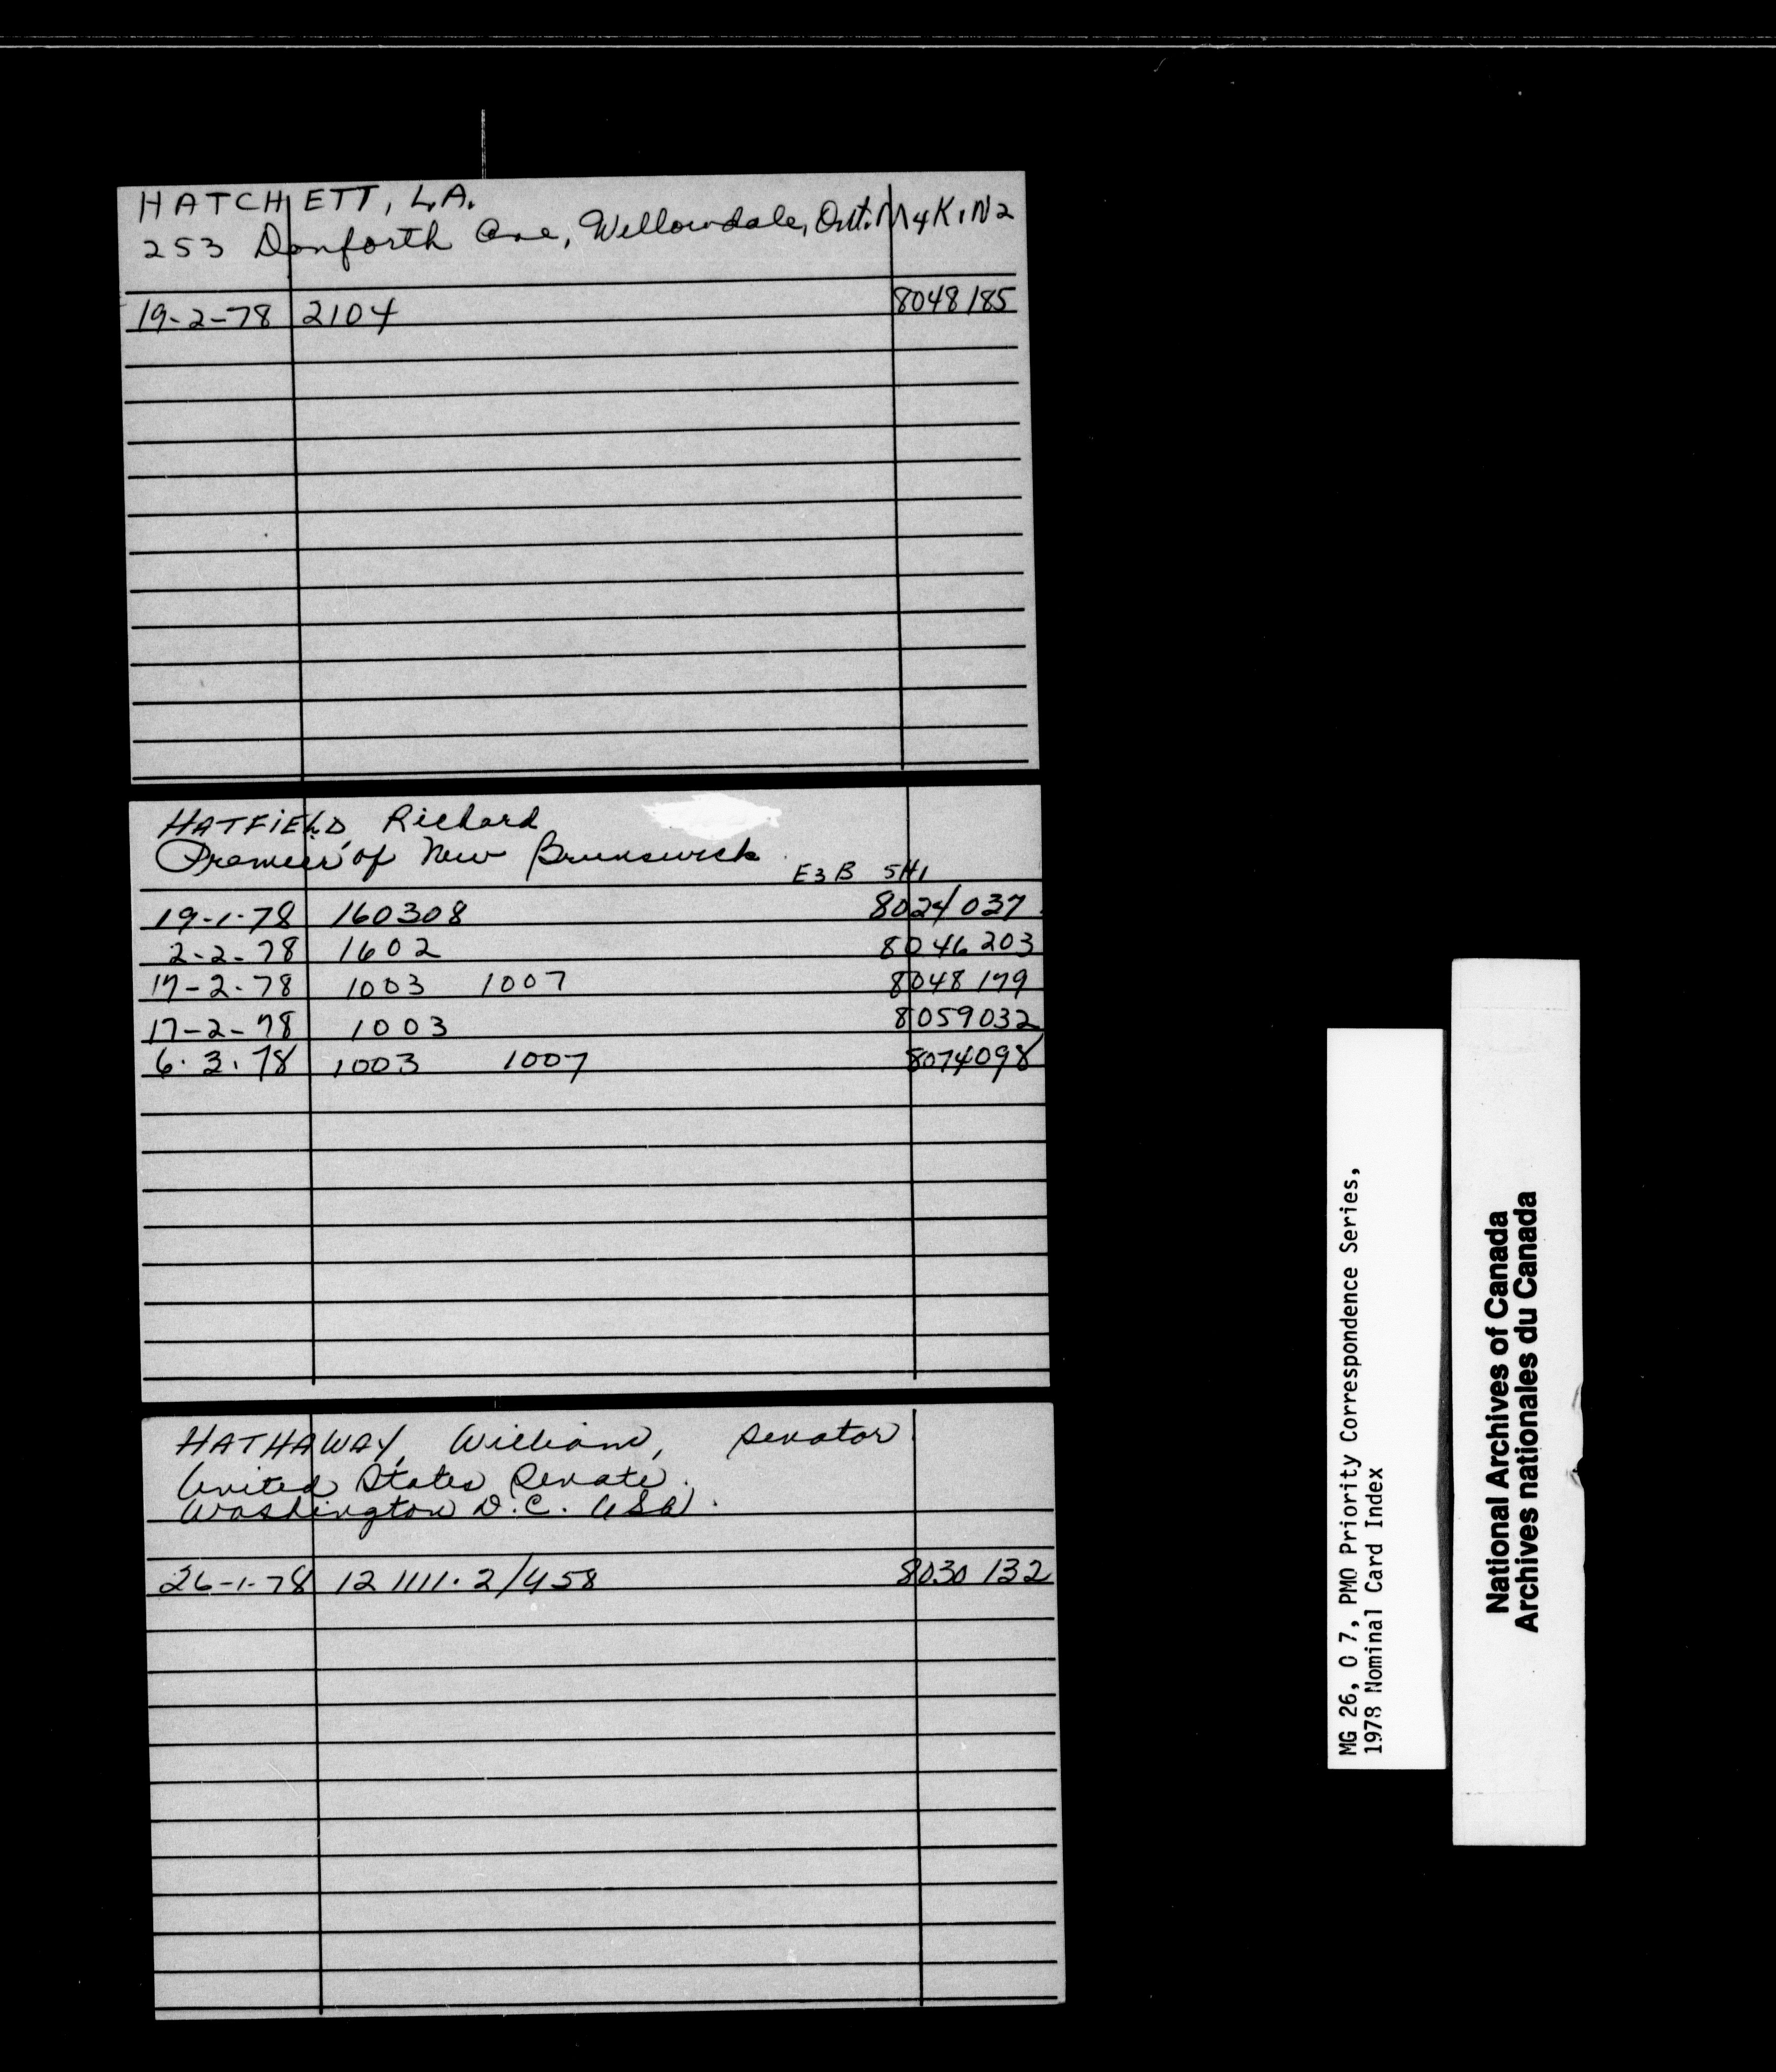 HATCHETT, L.A.
253 Danforth Ave, Willowdale, Ont. M4K1N2
19-2-78 2104 8048185
HATFIELD, Richard
Premier of New Brunswick
E3B 5H1
19-1-78 160308 8024037
2-2-78 1602 8046203
17-2-78 1003 1007 8048179
17-2-78 1003 8059032
6.3.78 1003 1007 8074098
HATHAWAY, William, Senator
United States Senate.
Washington D.C. USA.
26-1-78 12 1111.2/458 8030132
MG 26, O 7, PMO Priority Correspondence Series,
1978 Nominal Card Index
National Archives of Canada
Archives nationales du Canada